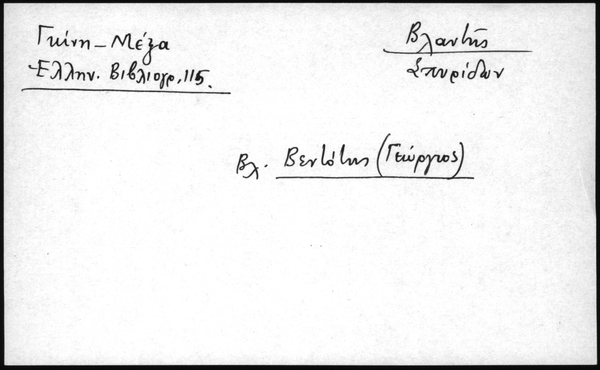 Γκίνη - Μέξα
Ελλην. Βιβλιογρ. 115.
Βλαντής
Σπυρίδων
Βλ. Βεντότης (Γεώργιος)